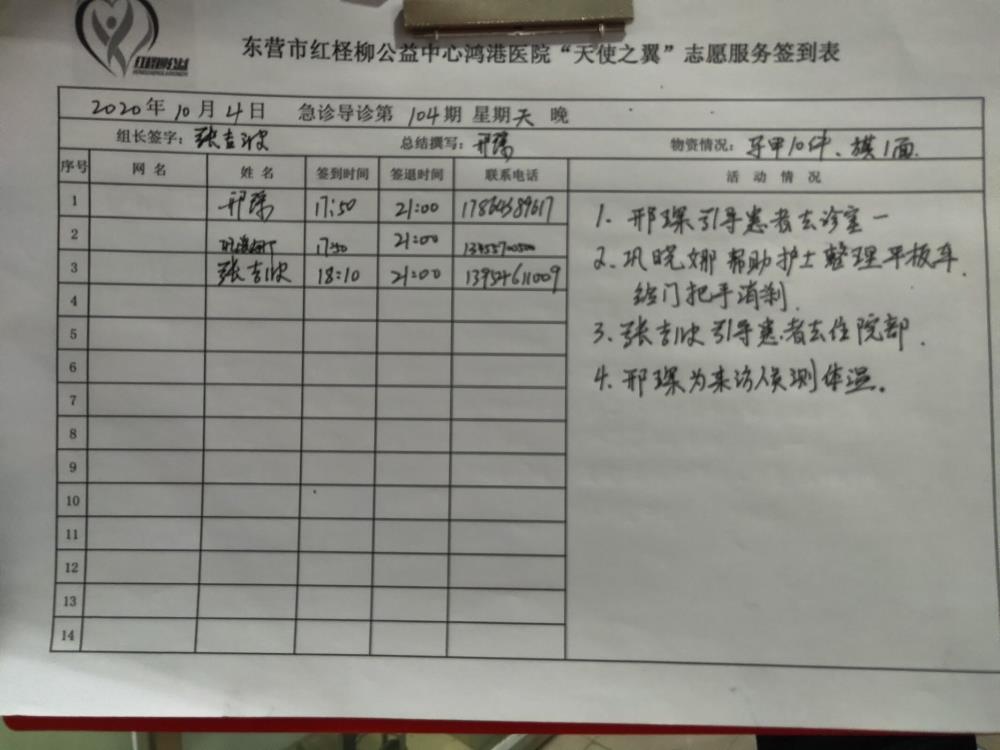 红柽柳公益
东营市红柽柳公益中心鸿港医院“天使之翼”志愿服务签到表
2020年10月4日 急诊导诊第104期 星期天 晚
组长签字：张吉波 总结撰写：邢琛 物资情况：马甲10件、旗1面.
序号 网名 姓名 签到时间 签退时间 联系电话 活动情况
1 邢琛 17:50 21:00
2 巩晓娜 17:50 21:00
3 张吉波 18:10 21:00 13954611009
4
5
6
7
8
9
10
11
12
13
14
1. 邢琛引导患者去诊室一
2. 巩晓娜帮助护士整理平板车.
给门把手消剂.
3. 张吉波引导患者去住院部.
4. 邢琛为来访人员测体温.